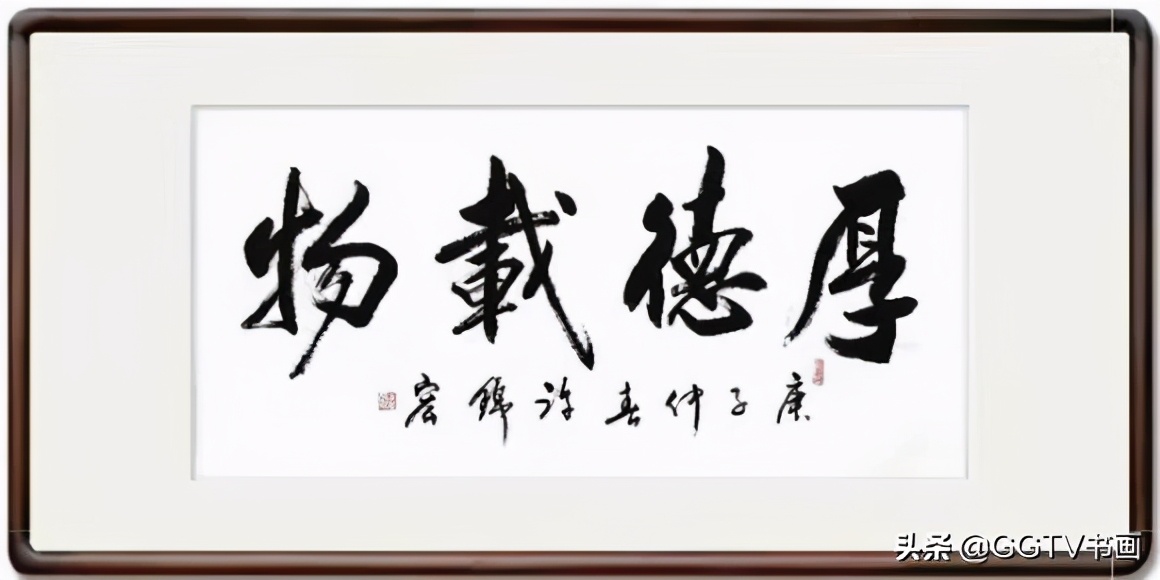 厚德載物
庚子仲春許錦宏
头条 @GGTV书画